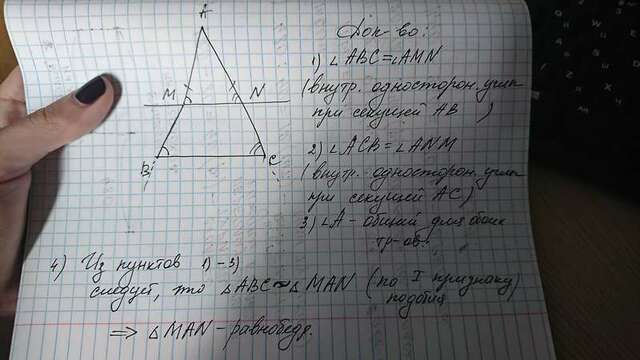 A
M
N
B
C
Док-во:
1) ∠ABC=∠AMN
(внутр. односторон. углы
при секущей AB )
2) ∠ACB = ∠ANM
(внутр. односторон. углы
при секущей AC)
3) ∠A - общий для обоих
тр-ов.
4) Из пунктов 1)-3)
следует, что △ABC ~ △MAN (по I признаку
подобия)
⇒ △MAN - равнобедр.